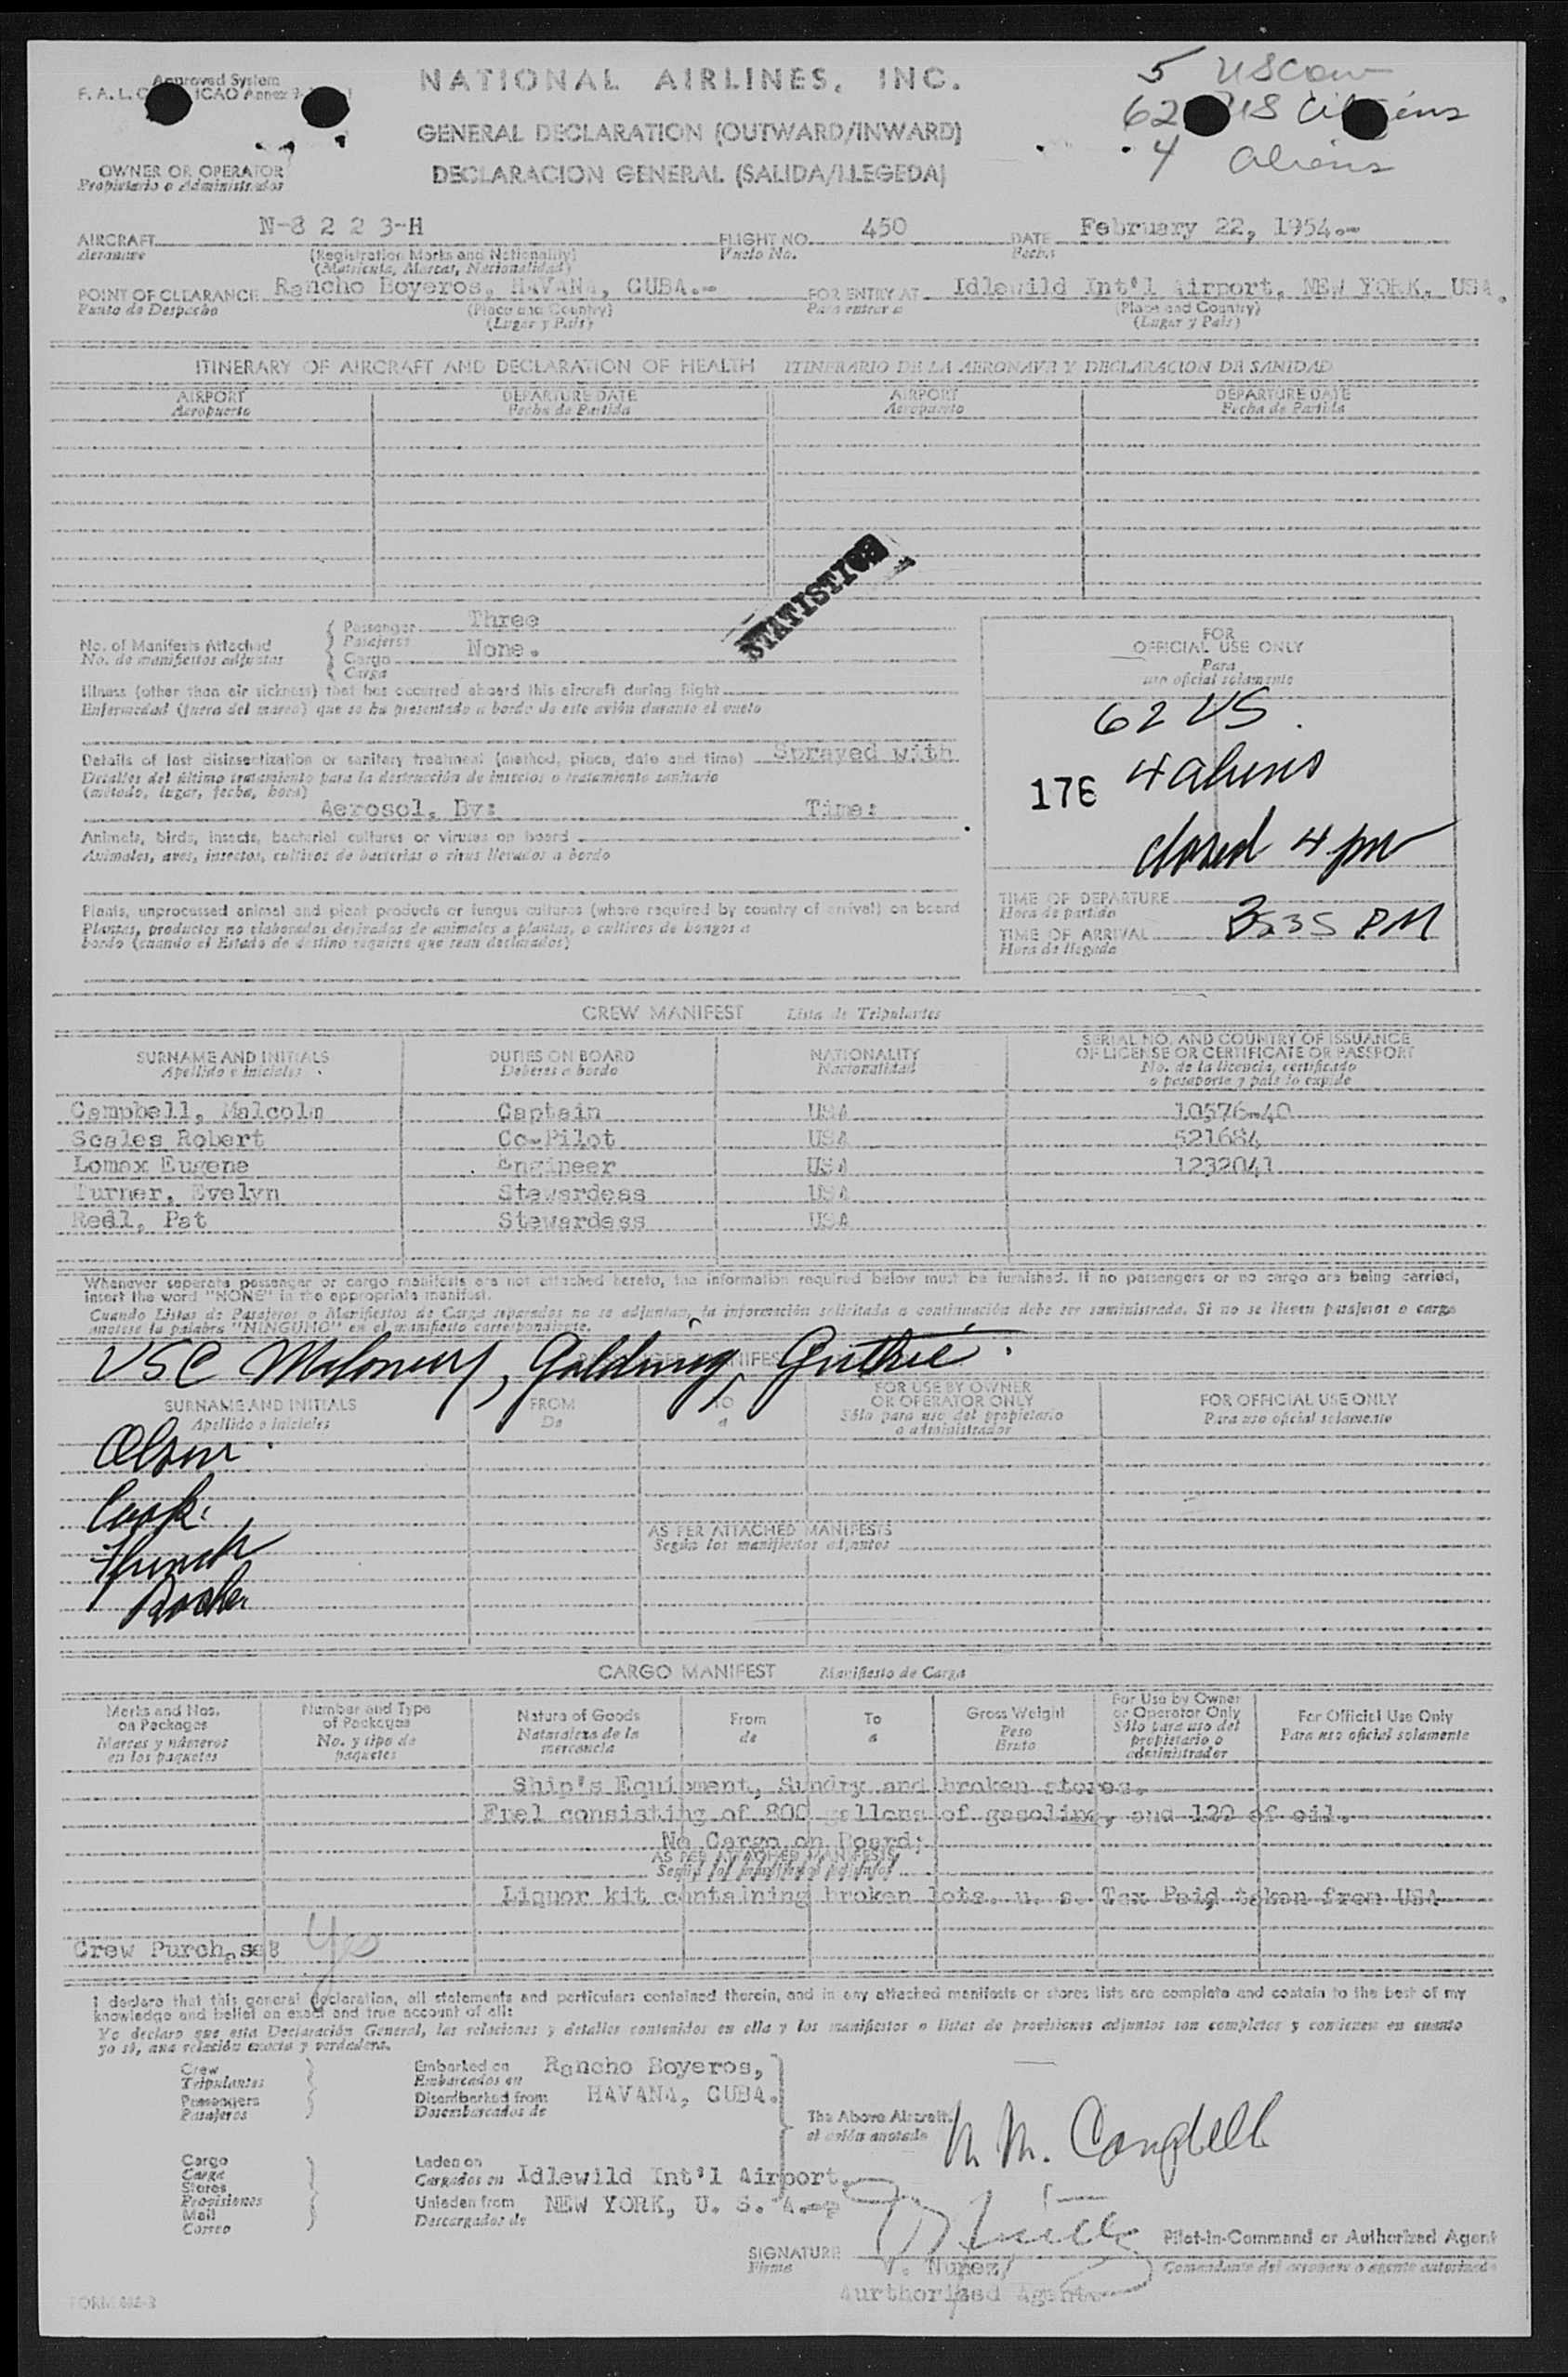 Approved System
F. A. L. C ICAO Annex 9
NATIONAL AIRLINES, INC.
5 US Crew
62 US Citizens
4 aliens
GENERAL DECLARATION (OUTWARD/INWARD)
DECLARACION GENERAL (SALIDA/LLEGEDA)
OWNER OR OPERATOR
Propietario o Administrador
AIRCRAFT N-8 2 2 3-H FLIGHT NO. 450 DATE February 22, 1954.-
Aeronave (Registration Marks and Nationality) Vuelo No. Fecha
(Matricula, Marcas, Nacionalidad)
POINT OF CLEARANCE Rancho Boyeros, HAVANA, CUBA.- FOR ENTRY AT Idlewild Int'l Airport, NEW YORK, USA.
Punto de Despacho (Place and Country) Para entrar a (Place and Country)
(Lugar y Pais) (Lugar y Pais)
ITINERARY OF AIRCRAFT AND DECLARATION OF HEALTH ITINERARIO DE LA AERONAVE Y DECLARACION DE SANIDAD
AIRPORT DEPARTURE DATE AIRPORT DEPARTURE DATE
Aeropuerto Fecha de Partida Aeropuerto Fecha de Partida
STATISTICS
No. of Manifests Attached Passenger Three
No. de manifiestos adjuntos Pasajeros
Cargo None.
Carga
Illness (other than air sickness) that has occurred aboard this aircraft during flight
Enfermedad (fuera del mareo) que se ha presentado a bordo de este avión durante el vuelo
Details of last disinsectization or sanitary treatment (method, place, date and time) Sprayed with
Detalles del último tratamiento para la destrucción de insectos o tratamiento sanitario
(método, lugar, fecha, hora)
Aerosol, By: Time:
Animals, birds, insects, bacterial cultures or viruses on board
Animales, aves, insectos, cultivos de bacterias o virus llevados a bordo
Plants, unprocessed animal and plant products or fungus cultures (where required by country of arrival) on board
Plantas, productos no elaborados derivados de animales a plantas, o cultivos de hongos a
bordo (cuando el Estado de destino requiere que sean declarados)
FOR
OFFICIAL USE ONLY
Para
uso oficial solamente
62 US.
4 aliens
176
closed 4 pm
TIME OF DEPARTURE
Hora de partida
TIME OF ARRIVAL 3:35 PM
Hora de llegada
CREW MANIFEST Lista de Tripulantes
SURNAME AND INITIALS DUTIES ON BOARD NATIONALITY SERIAL NO. AND COUNTRY OF ISSUANCE
OF LICENSE OR CERTIFICATE OR PASSPORT
Apellido e iniciales Deberes a bordo Nacionalidad No. de la licencia, certificado
o pasaporte y pais lo expide
Campbell, Malcolm Captain USA 10576-40
Scales Robert Co-Pilot USA 521684
Lomax Eugene Engineer USA 1232041
Turner, Evelyn Stewardess USA
Redl, Pat Stewardess USA
Whenever seperate passenger or cargo manifests are not attached hereto, the information required below must be furnished. If no passengers or no cargo are being carried,
insert the word "NONE" in the appropriate manifest.
Cuando Listas de Pasajeros o Manifiestos de Carga separados no se adjuntan, la información solicitada a continuación debe ser suministrada. Si no se lleven pasajeros o carga
anotese la palabra "NINGUNO" en el manifiesto correspondiente.
USC Maloney, Golding, Guthrie.
SURNAME AND INITIALS FROM TO FOR USE BY OWNER
OR OPERATOR ONLY FOR OFFICIAL USE ONLY
Apellido e iniciales De a Sólo para uso del propietario
o administrador Para uso oficial solamente
Olson
Cook.
AS PER ATTACHED MANIFESTS
Según los manifiestos adjuntos
CARGO MANIFEST Manifiesto de Carga
Marks and Nos.
on Packages
Marcas y números
en los paquetes
Number and Type
of Packages
No. y tipo de
paquetes
Nature of Goods
Naturaleza de la
mercancia
From
de
To
a
Gross Weight
Peso
Bruto
For Use by Owner
or Operator Only
Sólo para uso del
propietario o
administrador
For Official Use Only
Para uso oficial solamente
Ship's Equipment, Sundry and broken stores.
Fuel consisting of 800 gallons of gasoline, and 120 of oil.
No Cargo on Board;
AS PER ATTACHED MANIFESTS
Según los manifiestos adjuntos
Liquor kit containing broken lots. u. s. Tax Paid taken from USA
Crew Purchases
I declare that this general declaration, all statements and particulars contained therein, and in any attached manifests or stores lists are complete and contain to the best of my
knowledge and belief an exact and true account of all:
Yo declaro que esta Declaración General, las relaciones y detalles contenidos en ella y los manifiestos o listas de provisiones adjuntos son completos y contienen en cuanto
yo sé, una relación exacta y verdadera.
Crew
Tripulantes
Passengers
Pasajeros
Embarked on Rancho Boyeros,
Embarcados en
Disembarked from HAVANA, CUBA.
Desembarcados de
The Above Aircraft
el avión anotado
M. M. Campbell
Cargo
Carga
Stores
Provisiones
Mail
Correo
Laden on
Cargados en Idlewild Int'l Airport,
Unladen from NEW YORK, U. S. A.--
Descargados de
SIGNATURE Pilot-in-Command or Authorized Agent
Firma V. Nunez/ Comandante del aeronave o agente autorizado
Aurthorized Agent